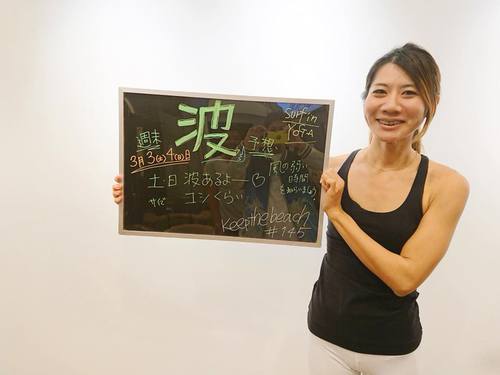 波
週末
予想
surfin
YOGA
3月3(土)4(日)日
土日 波あるよー
サイズ コシくらい
風の弱い
時間
をねらいましょう
Keepthebeach
#145